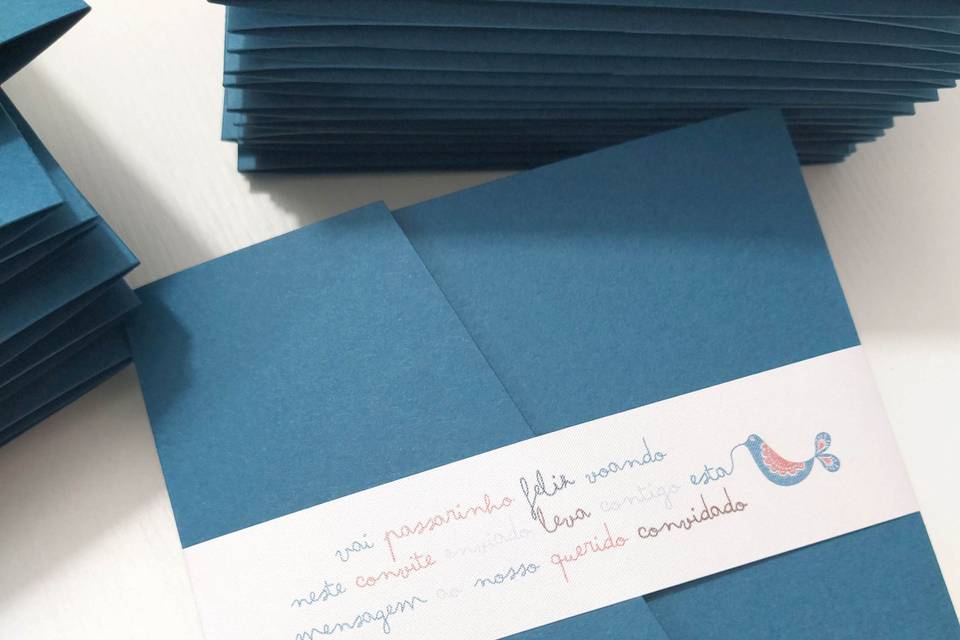 vai passarinho feliz voando
neste convite enviado leva contigo esta
mensagem ao nosso querido convidado